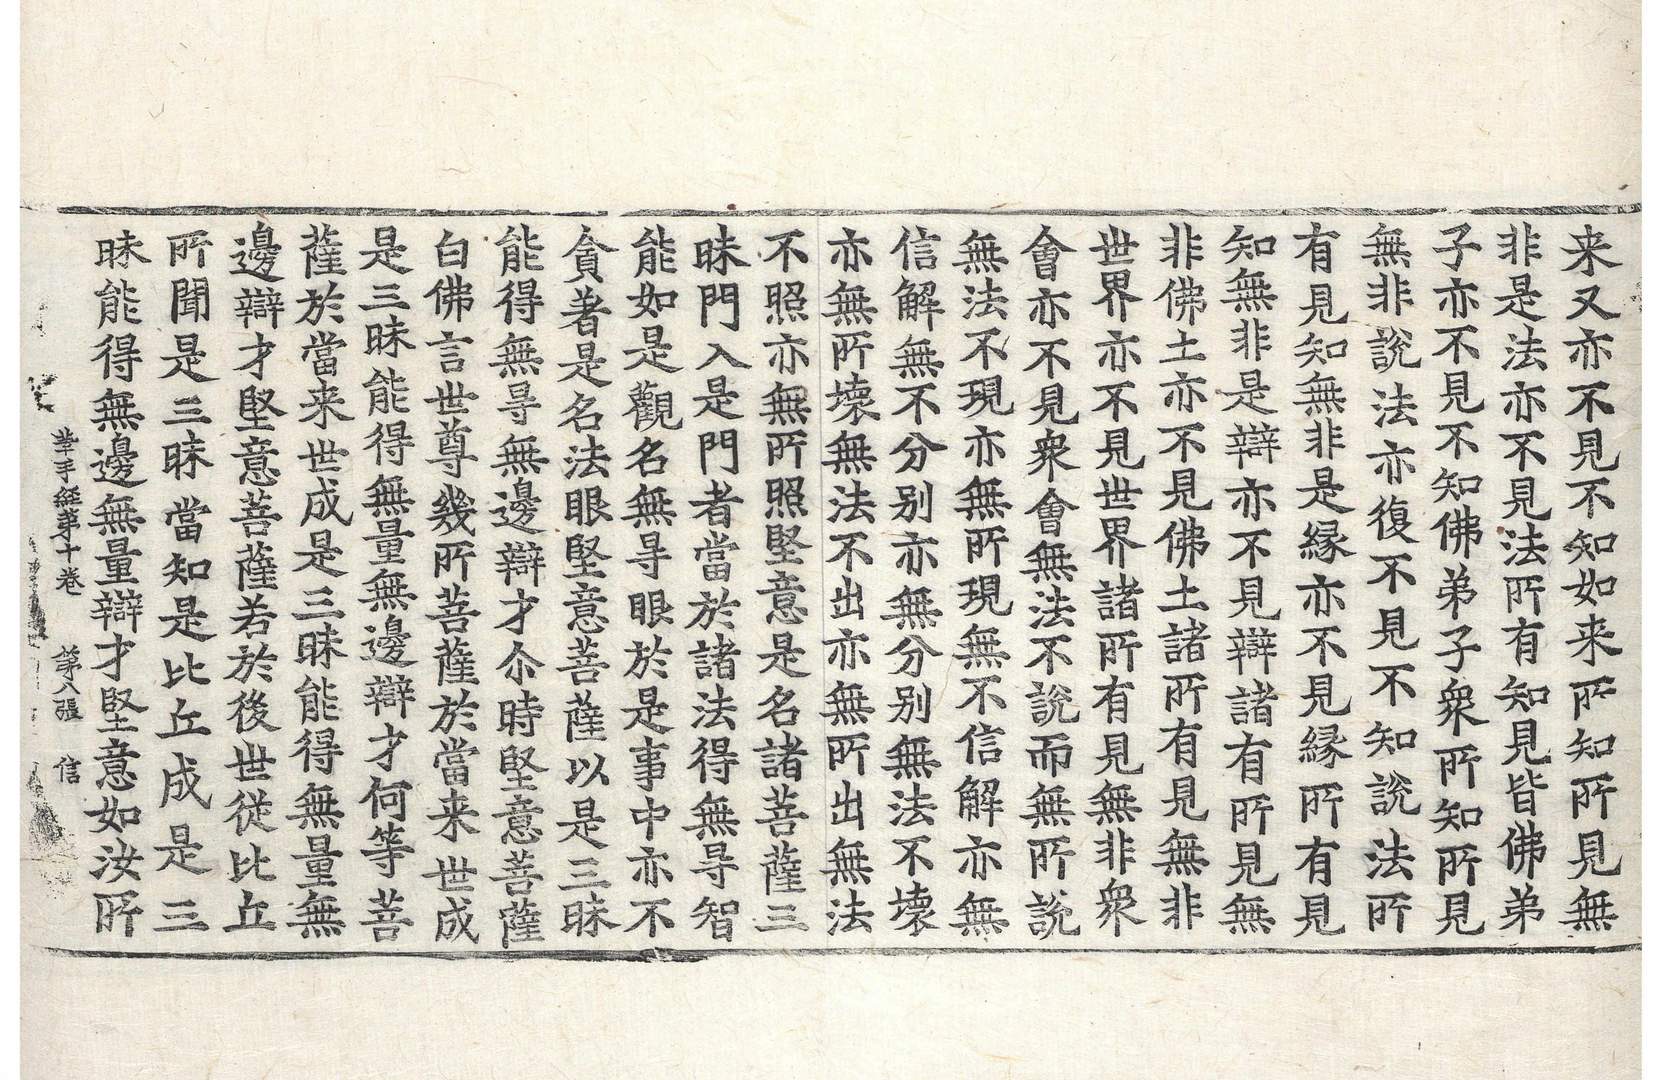 来又亦不見不知如来所知所見無
非是法亦不見法所有知見皆佛弟
子亦不見不知佛弟子衆所知所見
無非說法亦復不見不知說法所
有見知無非是縁亦不見縁所有見
知無非是辯亦不見辯諸有所見無
非佛土亦不見佛土諸所有見無非
世界亦不見世界諸所有見無非衆
會亦不見衆會無法不說而無所說
無法不現亦無所現無不信解亦無
信解無不分别亦無分别無法不壞
亦無所壞無法不出亦無所出無法
不照亦無所照堅意是名諸菩薩三
昧門入是門者當於諸法得無㝵智
能如是觀名無㝵眼於是事中亦不
貪著是名法眼堅意菩薩以是三昧
能得無㝵無邊辯才尒時堅意菩薩
白佛言世尊幾所菩薩於當来世成
是三昧能得無量無邊辯才何等菩
薩於當来世成是三昧能得無量無
邊辯才堅意菩薩若於後世從比丘
所聞是三昧當知是比丘成是三
昧能得無邊無量辯才堅意如汝所
華手經第十卷 第八張 信